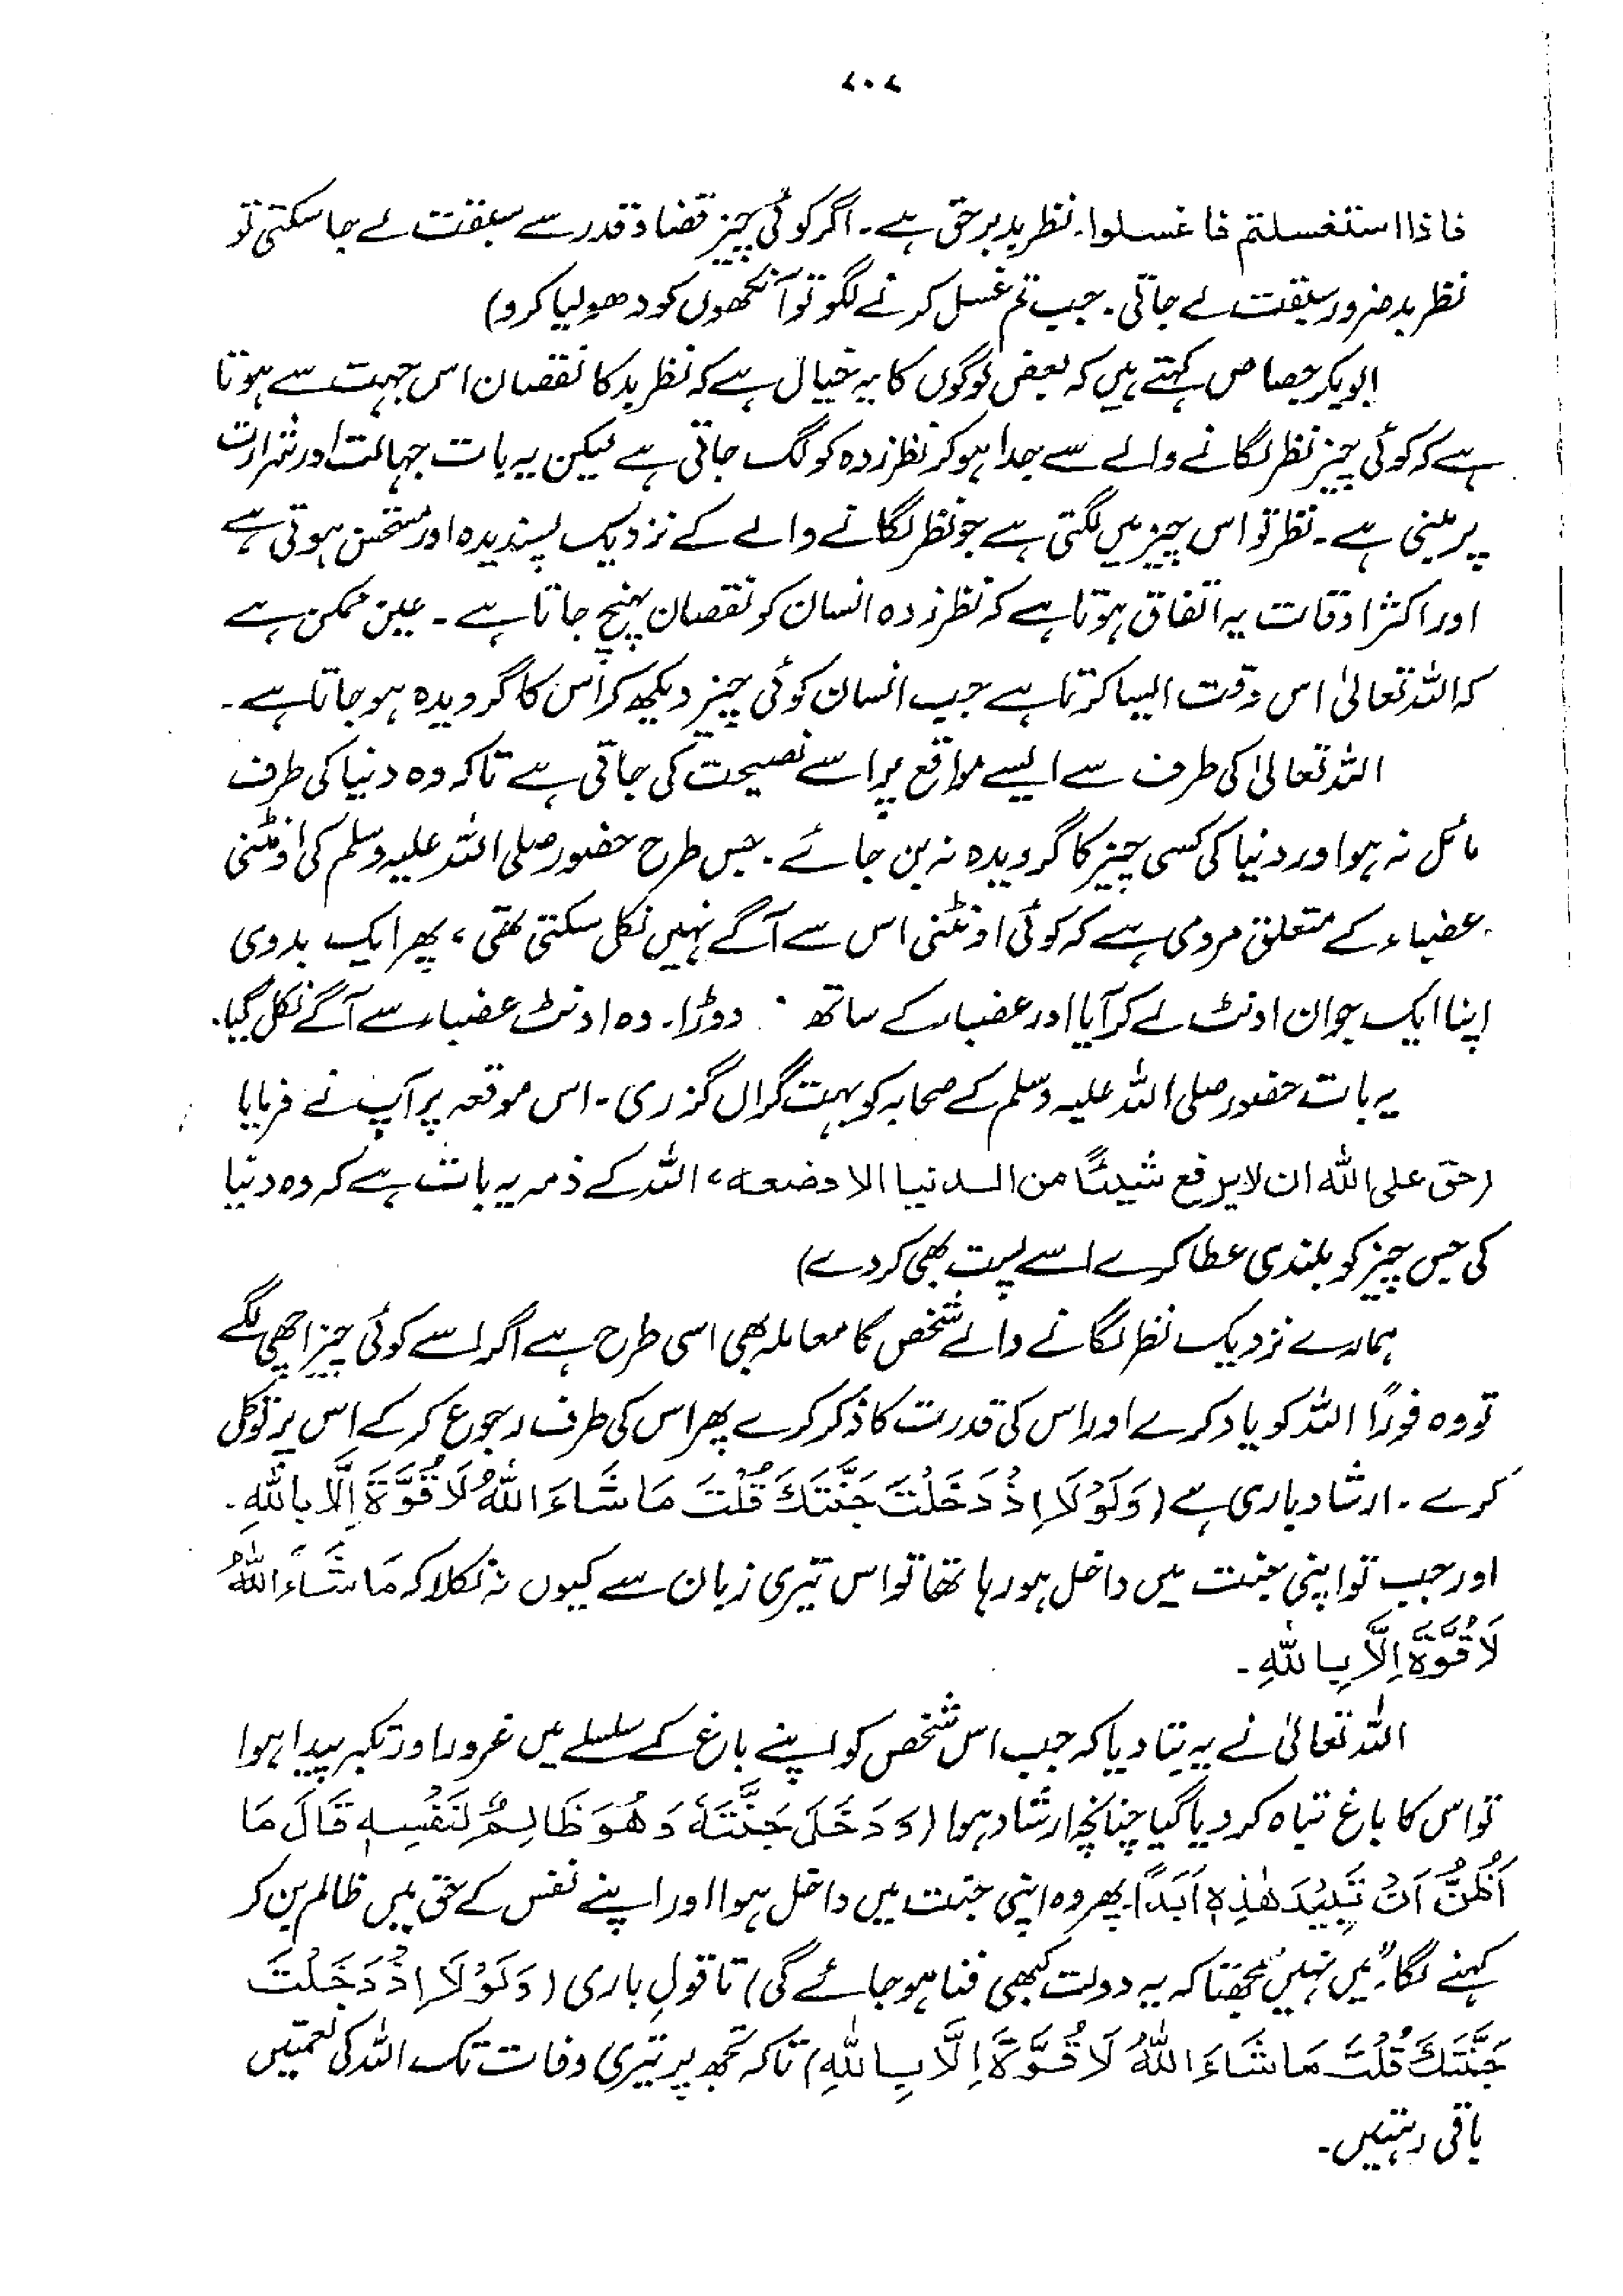 ۷۰۷
فاذا استغسلتم فاغسلوا۔ نظر بد برحق ہے۔ اگر کوئی چیز قضا و قدر سے سبقت لے جا سکتی تو
نظر بد ضرور سبقت لے جاتی۔ جب تم غسل کرنے لگو تو آنکھوں کو دھو لیا کرو)
ابوبکر جصاص کہتے ہیں کہ بعض لوگوں کا یہ خیال ہے کہ نظر بد کا نقصان اس جہت سے ہوتا
ہے کہ کوئی چیز نظر لگانے والے سے جدا ہو کر نظر زدہ کو لگ جاتی ہے لیکن یہ بات جہالت اور شرارت
پر مبنی ہے۔ نظر تو اس چیز میں لگتی ہے جو نظر لگانے والے کے نزدیک پسندیدہ اور مستحسن ہوتی ہے
اور اکثر اوقات یہ اتفاق ہوتا ہے کہ نظر زدہ انسان کو نقصان پہنچ جاتا ہے۔ عین ممکن ہے
کہ اللہ تعالیٰ اس وقت ایسا کرتا ہے جب انسان کوئی چیز دیکھ کر اس کا گرویدہ ہو جاتا ہے۔
اللہ تعالیٰ کی طرف سے ایسے مواقع پر اسے نصیحت کی جاتی ہے تاکہ وہ دنیا کی طرف
مائل نہ ہو اور دنیا کی کسی چیز کا گرویدہ نہ بن جائے۔ جس طرح حضور صلی اللہ علیہ وسلم کی اونٹنی
عضباء کے متعلق مروی ہے کہ کوئی اونٹنی اس سے آگے نہیں نکل سکتی تھی، پھر ایک بدوی
اپنا ایک جوان اونٹ لے کر آیا اور عضباء کے ساتھ دوڑا۔ وہ اونٹ عضباء سے آگے نکل گیا۔
یہ بات حضور صلی اللہ علیہ وسلم کے صحابہ کو بہت گراں گزری۔ اس موقعہ پر آپ نے فرمایا
(حق علی اللہ ان لا یرفع شیئًا من الدنیا الا وضعہ، اللہ کے ذمہ یہ بات ہے کہ وہ دنیا
کی جس چیز کو بلندی عطا کرے اسے پست بھی کر دے)
ہمارے نزدیک نظر لگانے والے شخص کا معاملہ بھی اسی طرح ہے اگر اسے کوئی چیز اچھی لگے
تو وہ فوراً اللہ کو یاد کرے اور اس کی قدرت کا ذکر کرے پھر اس کی طرف رجوع کر کے اس پر توکل
کرے۔ ارشاد باری ہے (وَلَوْلَا اِذْ دَخَلْتَ جَنَّتَكَ قُلْتَ مَا شَاءَ اللّٰهُ لَا قُوَّةَ اِلَّا بِاللّٰهِ۔
اور جب تو اپنی جنت میں داخل ہو رہا تھا تو اس تیری زبان سے کیوں نہ نکلا کہ مَا شَاءَ اللّٰهُ
لَا قُوَّةَ اِلَّا بِاللّٰهِ۔
اللہ تعالیٰ نے یہ بتا دیا کہ جب اس شخص کو اپنے باغ کے سلسلے میں غرور اور تکبر پیدا ہوا
تو اس کا باغ تباہ کر دیا گیا چنانچہ ارشاد ہوا (وَ دَخَلَ جَنَّتَهٗ وَ هُوَ ظَالِمٌ لِّنَفْسِهٖ قَالَ مَا
اَظُنُّ اَنْ تَبِيْدَ هٰذِهٖ اَبَدًا۔ پھر وہ اپنی جنت میں داخل ہوا اور اپنے نفس کے حق میں ظالم بن کر
کہنے لگا: "میں نہیں سمجھتا کہ یہ دولت کبھی فنا ہو جائے گی) تا قول باری (وَلَوْلَا اِذْ دَخَلْتَ
جَنَّتَكَ قُلْتَ مَا شَاءَ اللّٰهُ لَا قُوَّةَ اِلَّا بِاللّٰهِ) تاکہ تجھ پر تیری وفات تک اللہ کی نعمتیں
باقی رہتیں۔